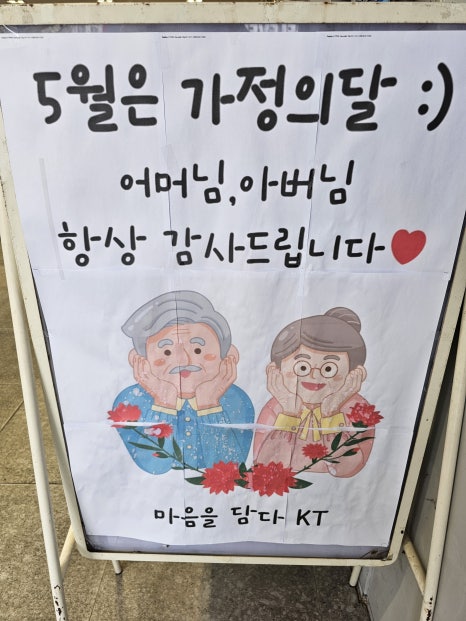 5월은 가정의달 :)
어머님,아버님
항상 감사드립니다❤
마음을 담다 KT